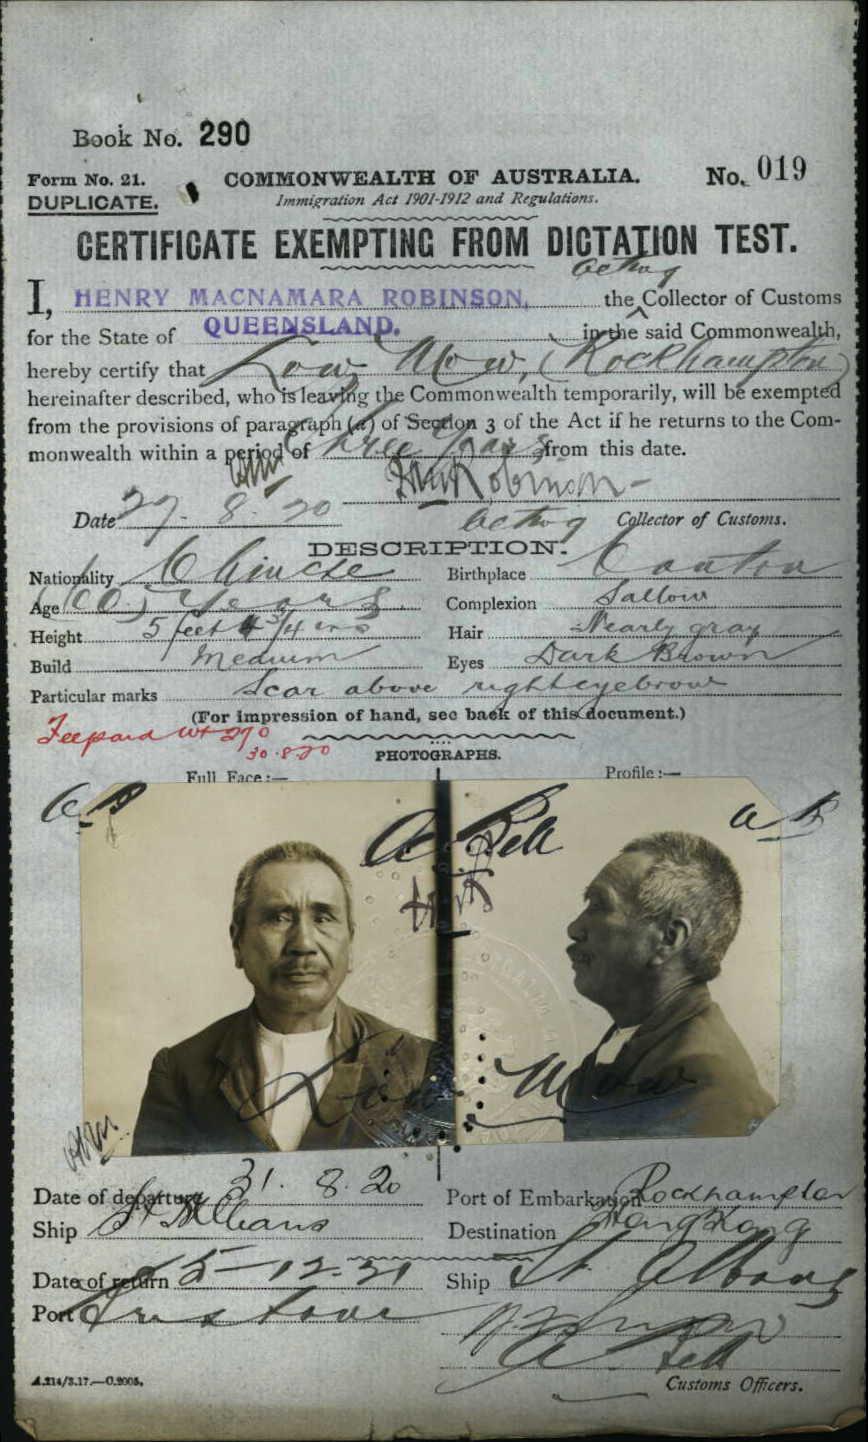 Book No. 290
Form No. 21. COMMONWEALTH OF AUSTRALIA. No. 019
DUPLICATE. Immigration Act 1901-1912 and Regulations.
CERTIFICATE EXEMPTING FROM DICTATION TEST.
acting
I, HENRY MACNAMARA ROBINSON, the Collector of Customs
for the State of QUEENSLAND. in the said Commonwealth,
hereby certify that Low Mow, (Rockhampton)
hereinafter described, who is leaving the Commonwealth temporarily, will be exempted
from the provisions of paragraph (a) of Section 3 of the Act if he returns to the Com-
monwealth within a period of Three Years from this date.
HMRobinson
Date 27. 8. 20 acting Collector of Customs.
DESCRIPTION.
Nationality Chinese Birthplace Canton
Age (60) Years Complexion Sallow
Height 5 feet 4 3/4 ins Hair Nearly gray
Build Medium Eyes Dark Brown
Particular marks Scar above right eyebrow
(For impression of hand, see back of this document.)
Fee paid
30.8.20
PHOTOGRAPHS.
Full Face:— Profile:—
A.B A Bell a B
Low Mow
Date of departure 31. 8. 20 Port of Embarkation Rockhampton
Ship St Albans Destination Hong Kong
Date of return 15-12-21 Ship St Albans
Port
A Bell
A.214/3.17.—C.2005. Customs Officers.